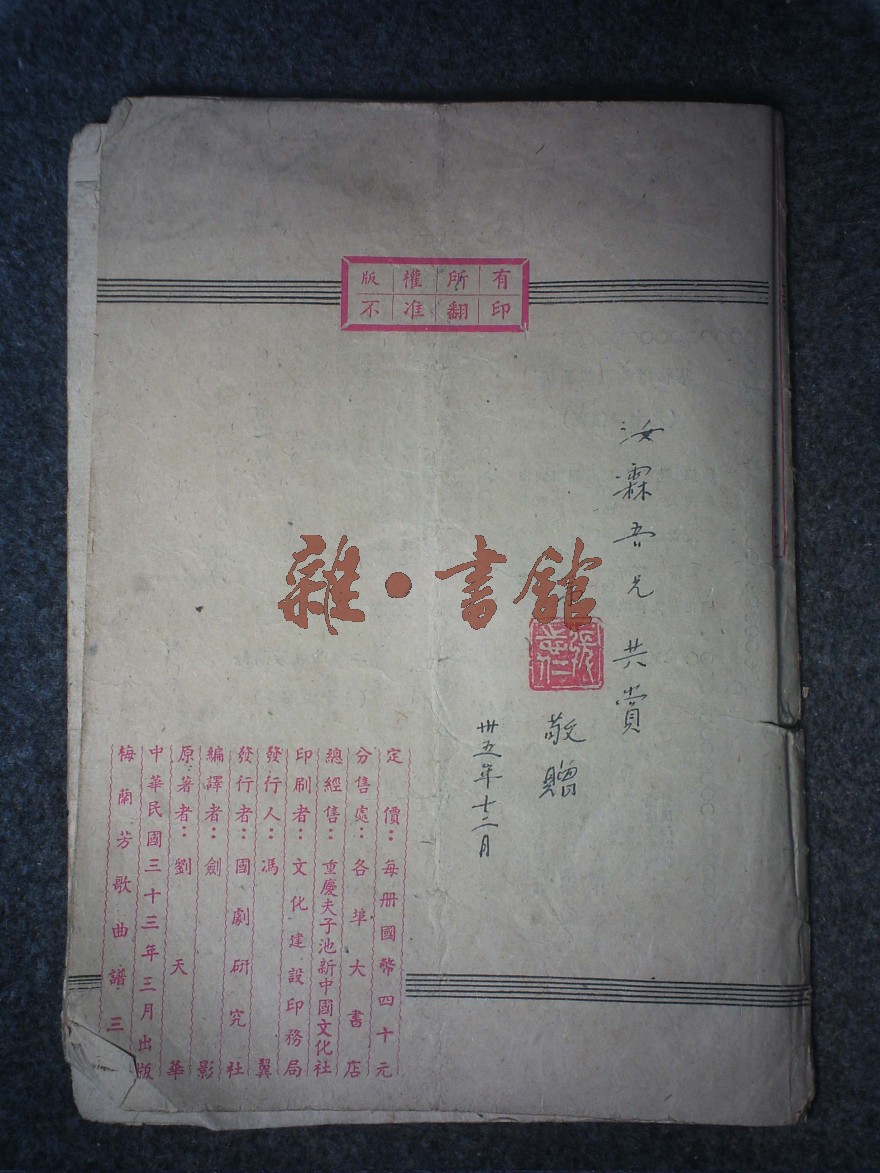 版權所有
不准翻印
汝霖吾兄共賞
敬贈
卅五年十二月
雜·書館
梅蘭芳歌曲譜三
中華民國三十三年三月出版
原著者：劉天華
編譯者：劍影
發行者：國劇研究社
發行人：馮翼
印刷者：文化建設印務局
總經售：重慶夫子池新中國文化社
分售處：各埠大書店
定價：每冊國幣四十元